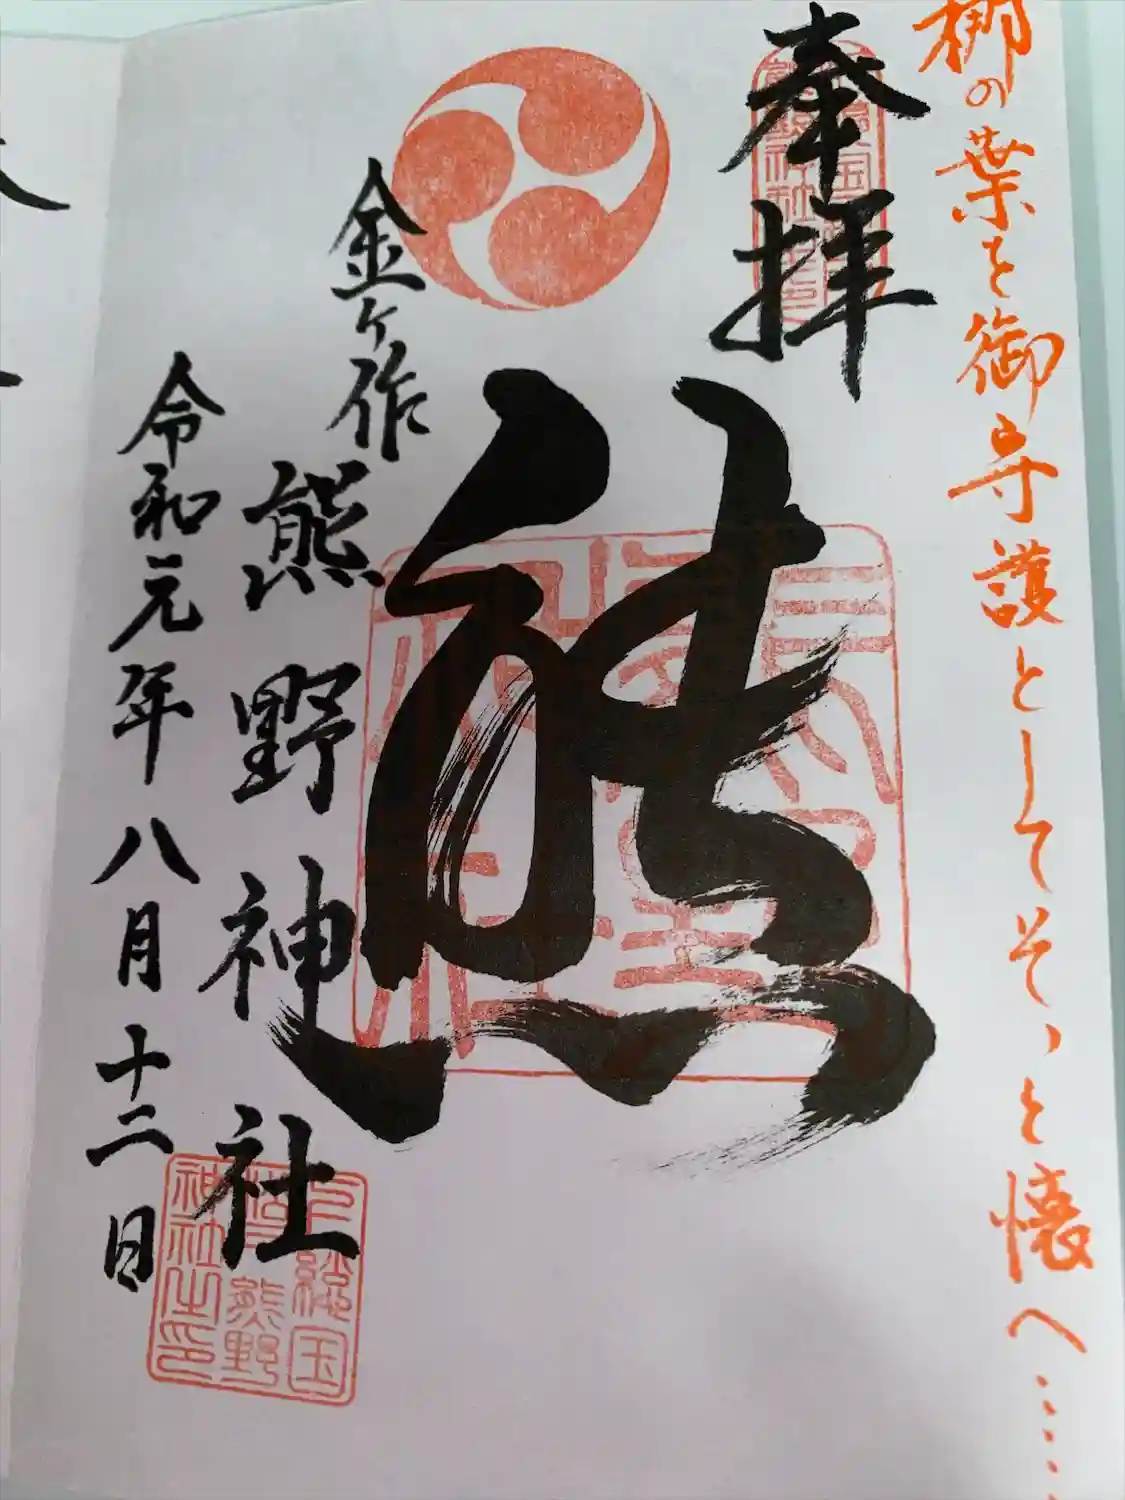 梛の葉を御守護としてそっと懐へ……
奉拝
熊
金ヶ作
熊野神社
令和元年八月十二日
下総国
熊野
神社之印